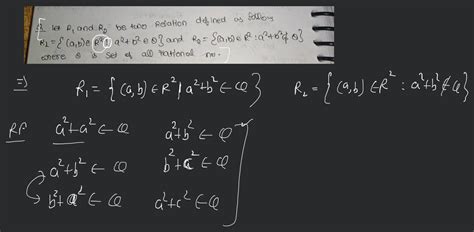 Q. Let R₁ and R₂ be two relation defined as follows
R₁ = {(a,b) ∈ R² : a²+b² ∈ Q} and R₂ = {(a,b) ∈ R² : a²+b² ∉ Q}
where Q is set of all rational no.
⇒) R₁ = { (a,b) ∈ R² | a²+b² ∈ Q } R₂ = { (a,b) ∈ R² : a²+b² ∉ Q }
RF a²+a² ∈ Q a²+b² ∈ Q
a²+b² ∈ Q b²+c² ∈ Q
b²+a² ∈ Q a²+c² ∈ Q